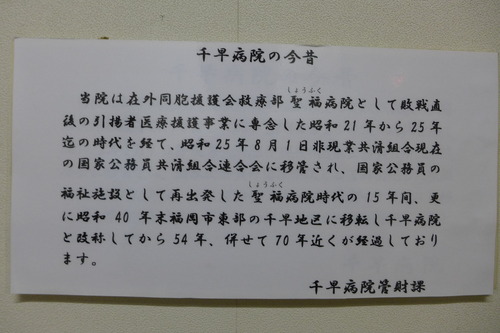 千早病院の今昔
しょうふく
当院は在外同胞援護会救療部 聖福病院として敗戦直
後の引揚者医療援護事業に専念した昭和21年から25年
迄の時代を経て、昭和25年8月1日非現業共済組合現在
の国家公務員共済組合連合会に移管され、国家公務員の
しょうふく
福祉施設として再出発した聖福病院時代の15年間、更
に昭和 40 年末福岡市東部の千早地区に移転し千早病院
と改称してから54年、併せて70年近くが経過しており
ます。
千早病院管財課